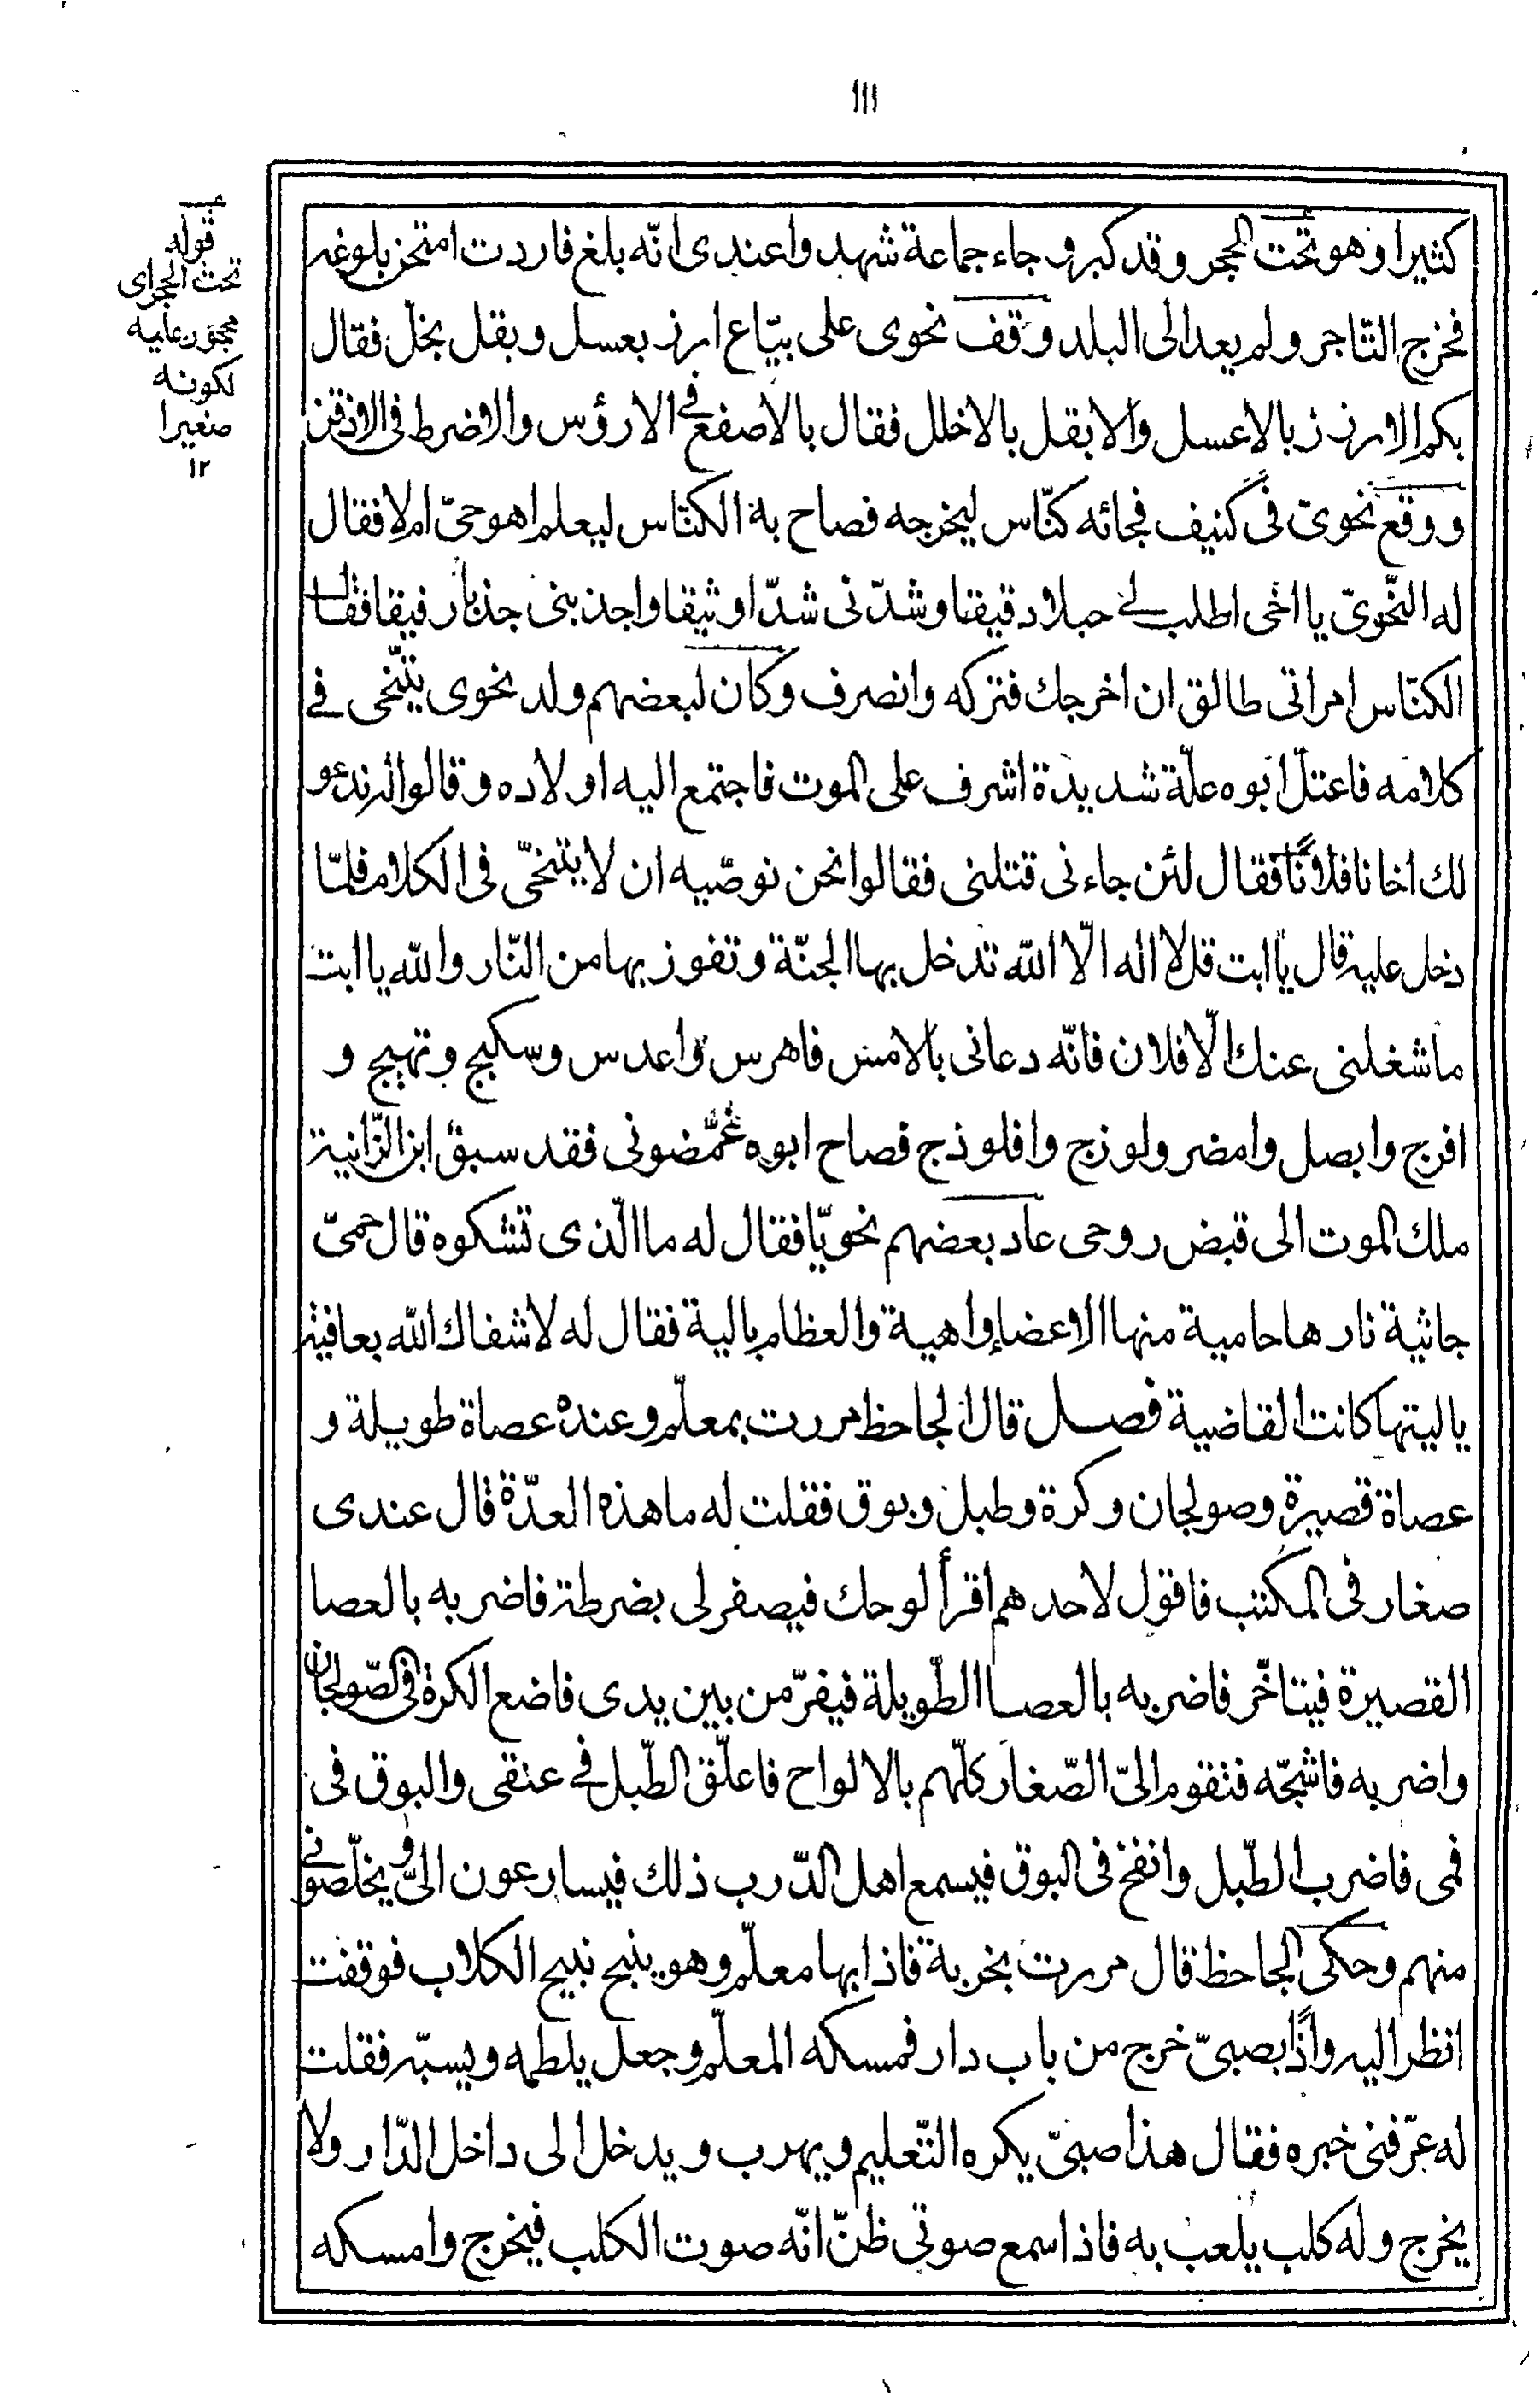 ١١١
كثيرا وهو تحت الحجر وقد كبر وجاء جماعة شهدوا عندى انّه بلغ فاردت امتحن بلوغه
فخرج التّاجر ولم يعد الى البلد وقف نحوى على بيّاع ارز بعسل وبقل بخلّ فقال
بكم الارز ز بالاعسل والابقل بالاخلل فقال بالاصفع فى الارؤس والاضرط فى الاذقن
ووقع نحوىّ فى كنيف فجائه كنّاس ليخرجه فصاح به الكنّاس ليعلم اهو حىّ ام لا فقال
له النّحوىّ يا اخى اطلب لى حبلا دقيقا وشدّنى شدّا وثيقا واجذبنى جذبا رفيقا فقال
الكنّاس امراتى طالق ان اخرجك فتركه وانصرف وكان لبعضهم ولد نحوى يتنحّى فى
كلامه فاعتلّ ابوه علّة شديدة اشرف على الموت فاجتمع اليه اولاده وقالوا له ندعو
لك اخانا فلانًا فقال لئن جاءنى قتلنى فقالوا نحن نوصّيه ان لا يتنحّى فى الكلام فلمّا
دخل عليه قال يا ابت قل لا اله الّا الله تدخل بها الجنّة وتفوز بها من النّار والله يا ابت
ما شغلنى عنك الّا فلان فانّه دعانى بالامس فاهرس واعدس وسكبج وتهبج و
افرج وابصل وامضر ولوزج وافلوذج فصاح ابوه غمّضونى فقد سبق ابن الزّانية
ملك الموت الى قبض روحى عاد بعضهم نحويّا فقال له ما الّذى تشكوه قال حمىّ
جاثية نارها حامية منها الاعضاء واهية والعظام بالية فقال له لا شفاك الله بعافية
يا ليتها كانت القاضية فصـل قال الجاحظ مررت بمعلّم وعنده عصاة طويلة و
عصاة قصيرة وصولجان وكرة وطبل وبوق فقلت له ما هذه العدّة قال عندى
صغار فى المكتب فاقول لاحدهم اقرأ لوحك فيصفر لى بضرطة فاضربه بالعصا
القصيرة فيتاخّر فاضربه بالعصا الطّويلة فيفرّ من بين يدى فاضع الكرة فى الصّولجان
واضربه فاشجّه فتقوم الىّ الصّغار كلّهم بالالواح فاعلّق الطّبل فى عنقى والبوق فى
فمى فاضرب الطّبل وانفخ فى البوق فيسمع اهل الدّرب ذلك فيسارعون الىّ ويخلّصونى
منهم وحكى الجاحظ قال مررت بخربة فاذا بها معلّم وهو ينبح نبيح الكلاب فوقفت
انظر اليه واذًا بصبىّ خرج من باب دار فمسكه المعلّم وجعل يلطمه ويسبّه فقلت
له عرّفنى خبره فقال هذا صبىّ يكره التّعليم ويهرب ويدخل الى داخل الدّار ولا
يخرج وله كلب يلعب به فاذا سمع صوتى ظنّ انّه صوت الكلب فيخرج وامسكه
قوله
تحت الحجر اى
محجور عليه
لكونه
صغيرا
١٢